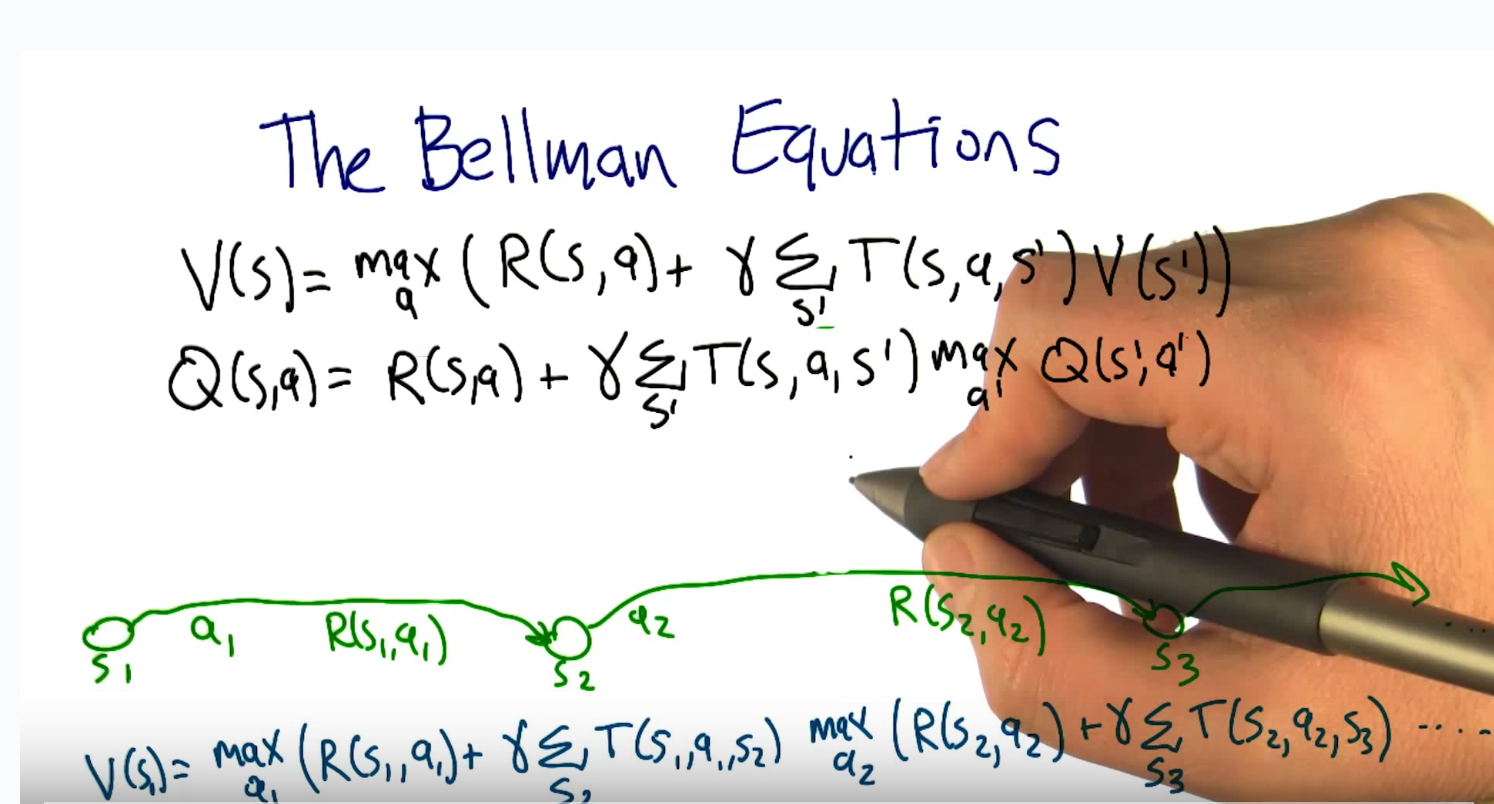 The Bellman Equations
V(s) = max_a (R(s,a) + γ Σ_s' T(s,a,s') V(s'))
Q(s,a) = R(s,a) + γ Σ_s' T(s,a,s') max_a' Q(s',a')
a₁ R(s₁,a₁) a₂ R(s₂,a₂) ...
s₁ s₂ s₃
V(s₁) = max_a₁ (R(s₁,a₁) + γ Σ_s₂ T(s₁,a₁,s₂) max_a₂ (R(s₂,a₂) + γ Σ_s₃ T(s₂,a₂,s₃) .....